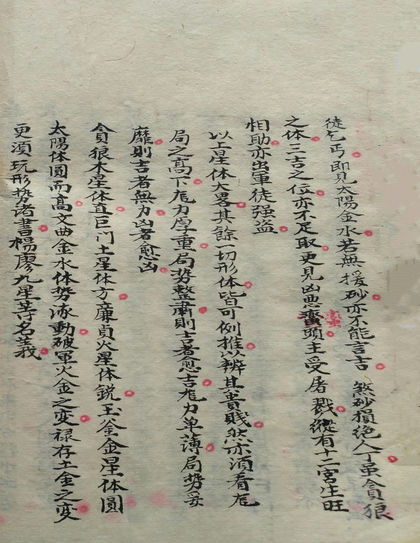 徒乞丐即見太陽金水若無援砂亦不能言吉煞砂損絕人丁虽貪狼
之体三吉之位亦不足取更見凶惡蛮頭主受屠戮縱有十二宮生旺
相助亦出軍徒強盜
以上星体大畧其餘一切形体皆可例推以辨其貴賤然亦須看龙
局之高下龙力厚重局势整肅則吉者愈吉龙力单薄局势妥
靡則吉者無力凶者愈凶
貪狼木星体直巨门土星体方廉貞火星体銳玉釜金星体圓
太陽体圓而高文曲金水体势泳動破軍火金之变禄存土金之变
更須玩形势诸書楊廖九星等名義